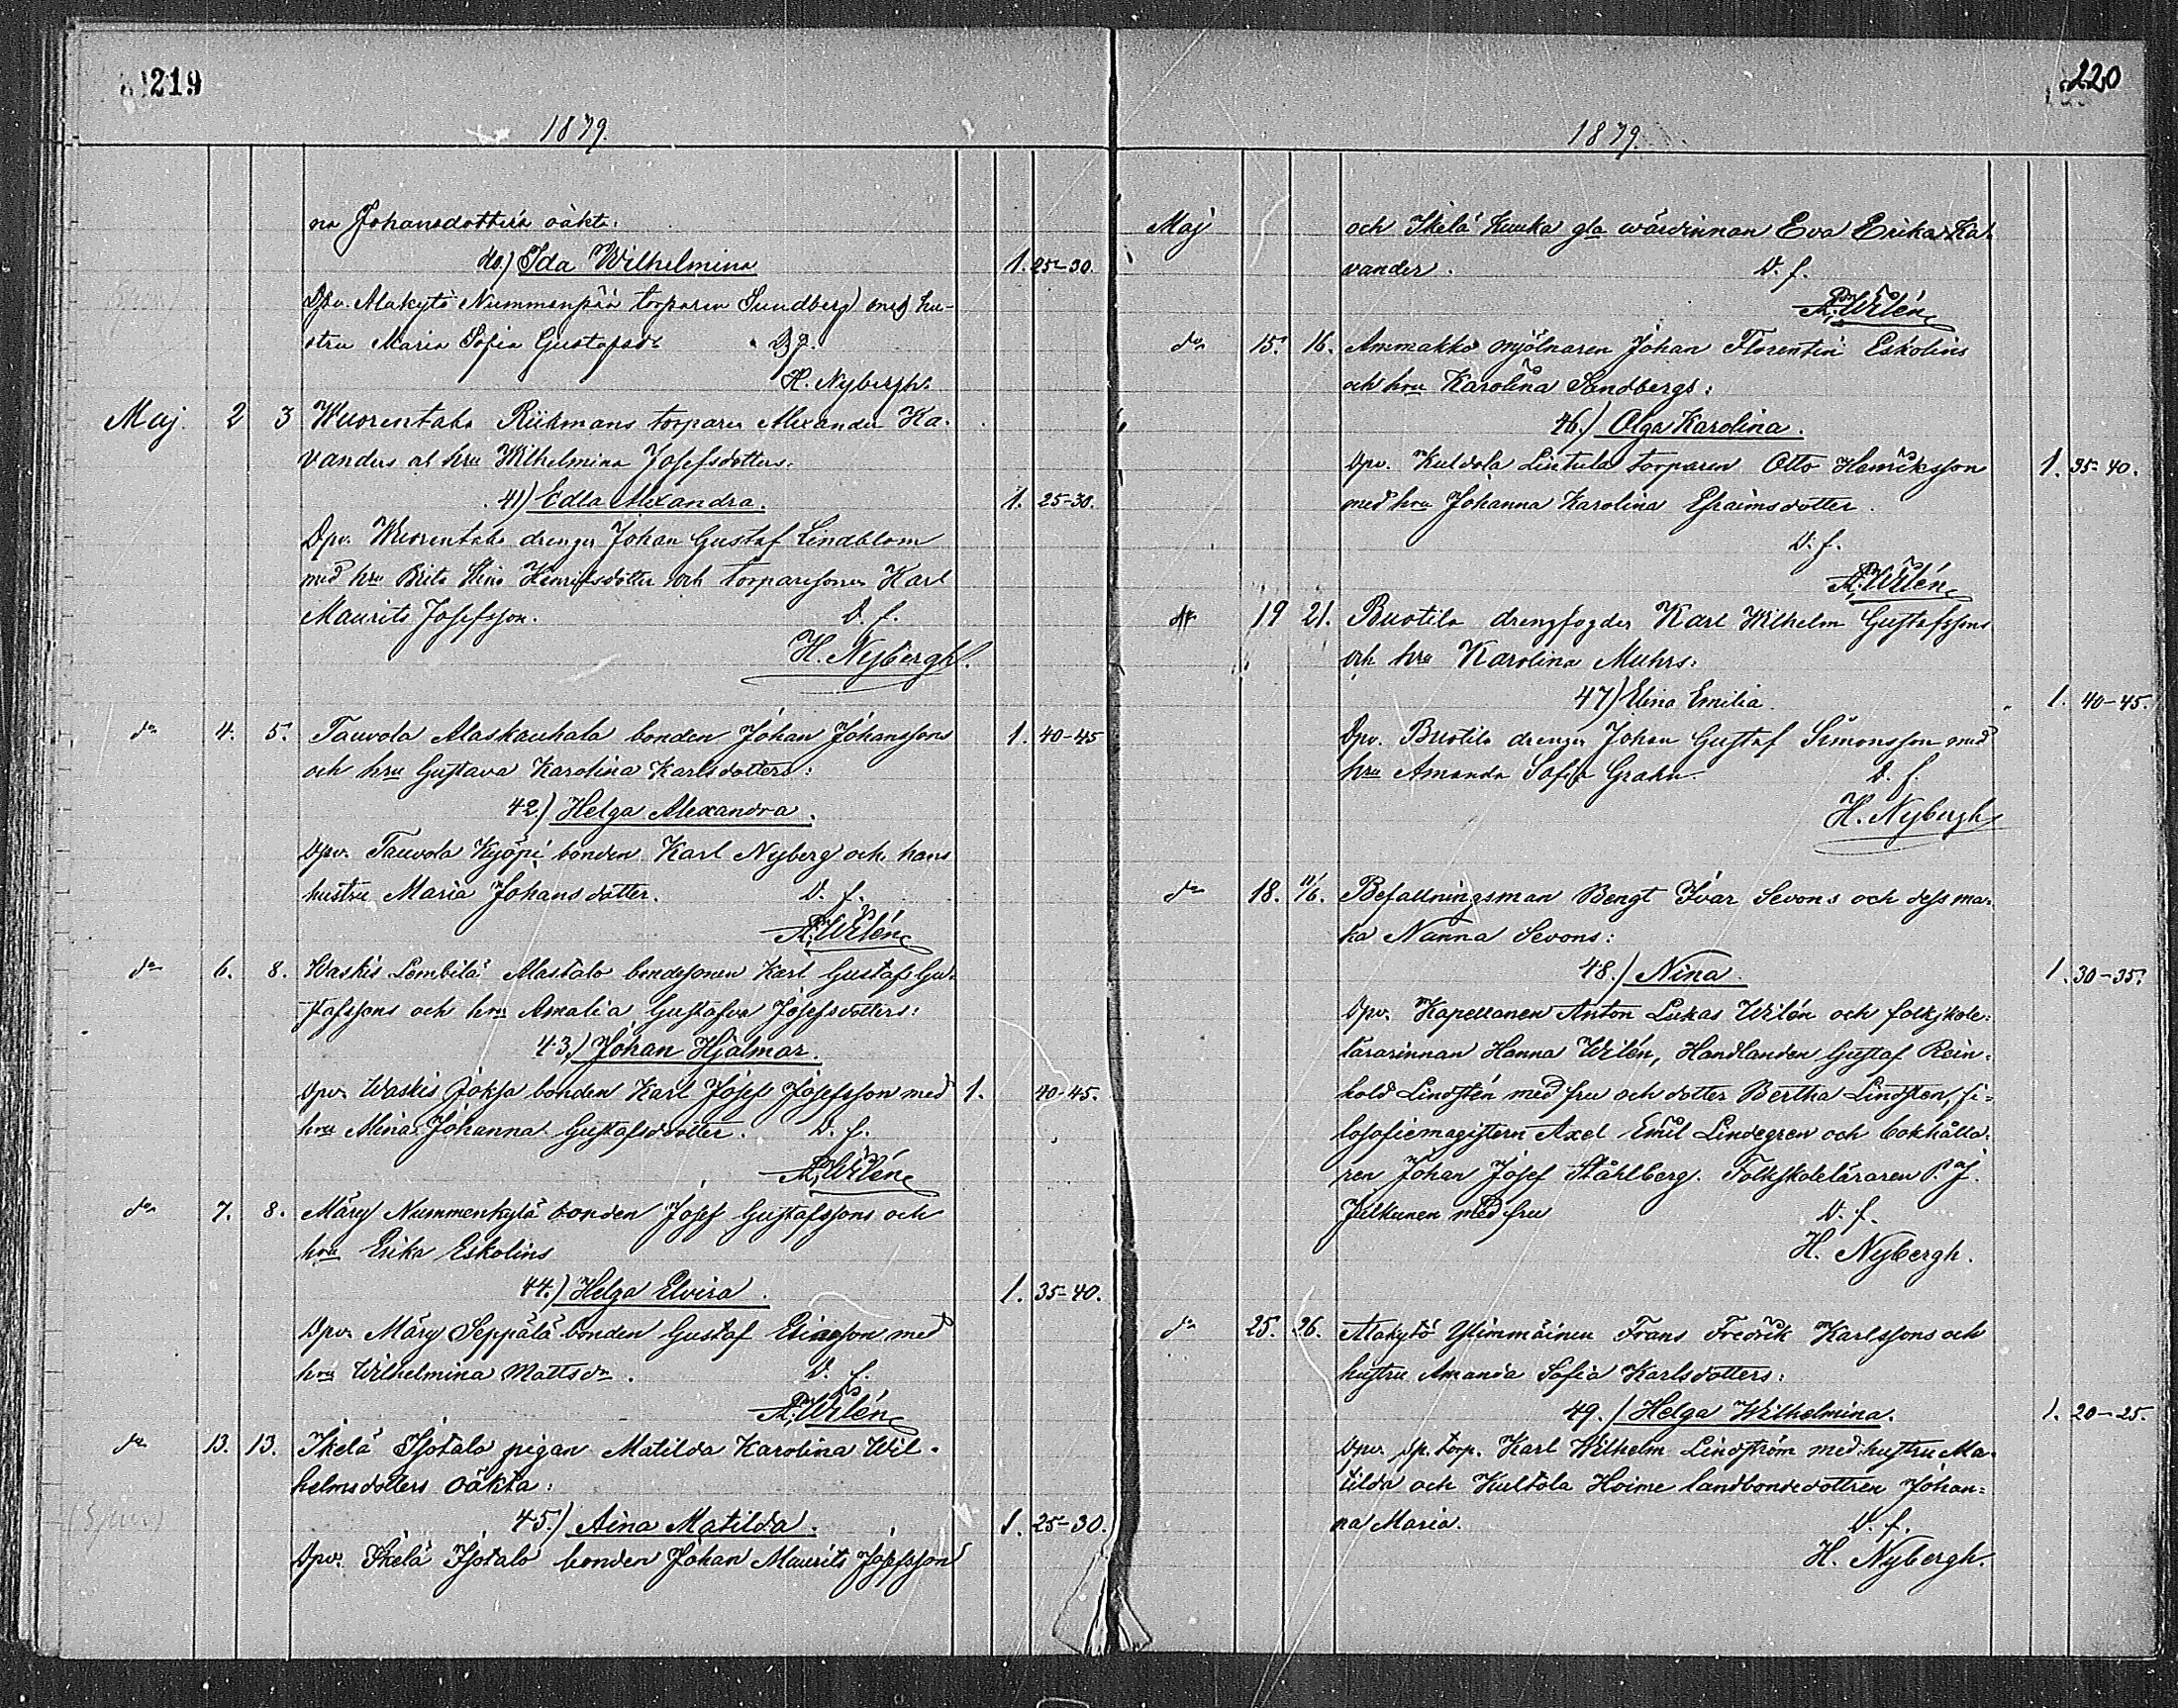 219
1879.
na Johansdotters oäkta:
40.) Ida Wilhelmina 1. 25-30.
Dpv. Alakytö Nummenpää torparen Sundberg med hu-
stru Maria Sofia Gustafsdr D. f.
H. Nybergh.
Maj. 2 3 Wuorentaka Riihmans torparen Alexander Ka-
vanders o hru Wilhelmina Josefsdotters.
41) Edla Alexandra. 1. 25-30.
Dpv. Wuorentaka drengen Johan Gustaf Lindblom
med hru Brita Stina Henriksdotter och torparesonen Karl
Maurits Josefsson. D. f.
H. Nybergh.
do 4. 5. Tauvola Alaskauhala bonden Johan Johanssons 1. 40-45
och hru Gustava Karolina Karlsdotters:
42.) Helga Alexandra.
Dpv. Tauvola Kyöpi bonden Karl Nyberg och hans
hustru Maria Johansdotter. D. f.
A. Wilén
do 6. 8. Waskis Lembilä Alastalo bondesonen Karl Gustaf Gu-
stafssons och hru Amalia Gustafva Josefsdotters:
43.) Johan Hjalmar.
Dpv. Waskis Jokja bonden Karl Josef Josefsson med 1. 40-45.
hru Mina Johanna Gustafsdotter. D. f.
A. Wilén
do 7. 8. Märy Nummenkylä bonden Josef Gustafssons och
hru Erika Eskolins
44.) Helga Elvira. 1. 35-40.
Dpv. Märy Seppälä bonden Gustaf Eliasson med
hru Wilhelmina Mattsdr. D. f.
A. Wilén
do 13. 13. Ikelä Isotalo pigan Matilda Karolina Wil-
helmsdotters oäkta:
45.) Aina Matilda. 1. 25-30.
Dpv. Ikelä Isotalo bonden Johan Maurits Josefsson
220
1879.
Maj och Ikelä Kuuka gla wärdinnan Eva Erika Ka-
vander. D. f.
A. Wilén
do 15. 16. Ammakko mjölnaren Johan Florentin Eskolins
och hru Karolina Sandbergs:
46.) Olga Karolina.
Dpv. Kuldola Lintula torparen Otto Henriksson 1. 35-40.
med hru Johanna Karolina Efraimsdotter.
D. f.
A. Wilén
do 19 21. Buotila drengfogden Karl Wilhelm Gustafssons
och hru Karolina Muhrs:
47) Elina Emilia. 1. 40-45.
Dpv. Buotila drengen Johan Gustaf Simonsson med
hru Amanda Sofia Grahn. D. f.
H. Nybergh
do 18. 11/6. Befallningsman Bengt Ivar Sevons och dess ma-
ka Nanna Sevons:
48.) Nina. 1. 30-35.
Dpv. Kapellanen Anton Lukas Wilén och folkskole-
lärarinnan Hanna Wilén, Handlanden Gustaf Rein-
hold Lindstén med fru och dotter Bertha Lindsten, fi-
losofiemagistern Axel Emil Lindegren och bokhålla-
ren Johan Josef Ståhlberg. Folkskoleläraren P. J.
Julkunen med fru D. f.
H. Nybergh.
do 25. 26. Alakytö Ylimmäinen Frans Fredrik Karlssons och
hustru Amanda Sofia Karlsdotters:
49.) Helga Wilhelmina. 1. 20-25.
Dpv. sp. torp. Karl Wilhelm Lindström med hustru Ma-
tilda och Kultola Hoime landbondedottren Johan-
na Maria. D. f.
H. Nybergh.